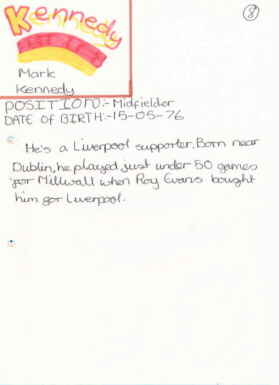 Kennedy
8
Mark
Kennedy
POSITION:- Midfielder
DATE OF BIRTH:-15-05-76
He's a Liverpool supporter. Born near
Dublin, he played just under 50 games
for Millwall when Roy Evans bought
him for Liverpool.